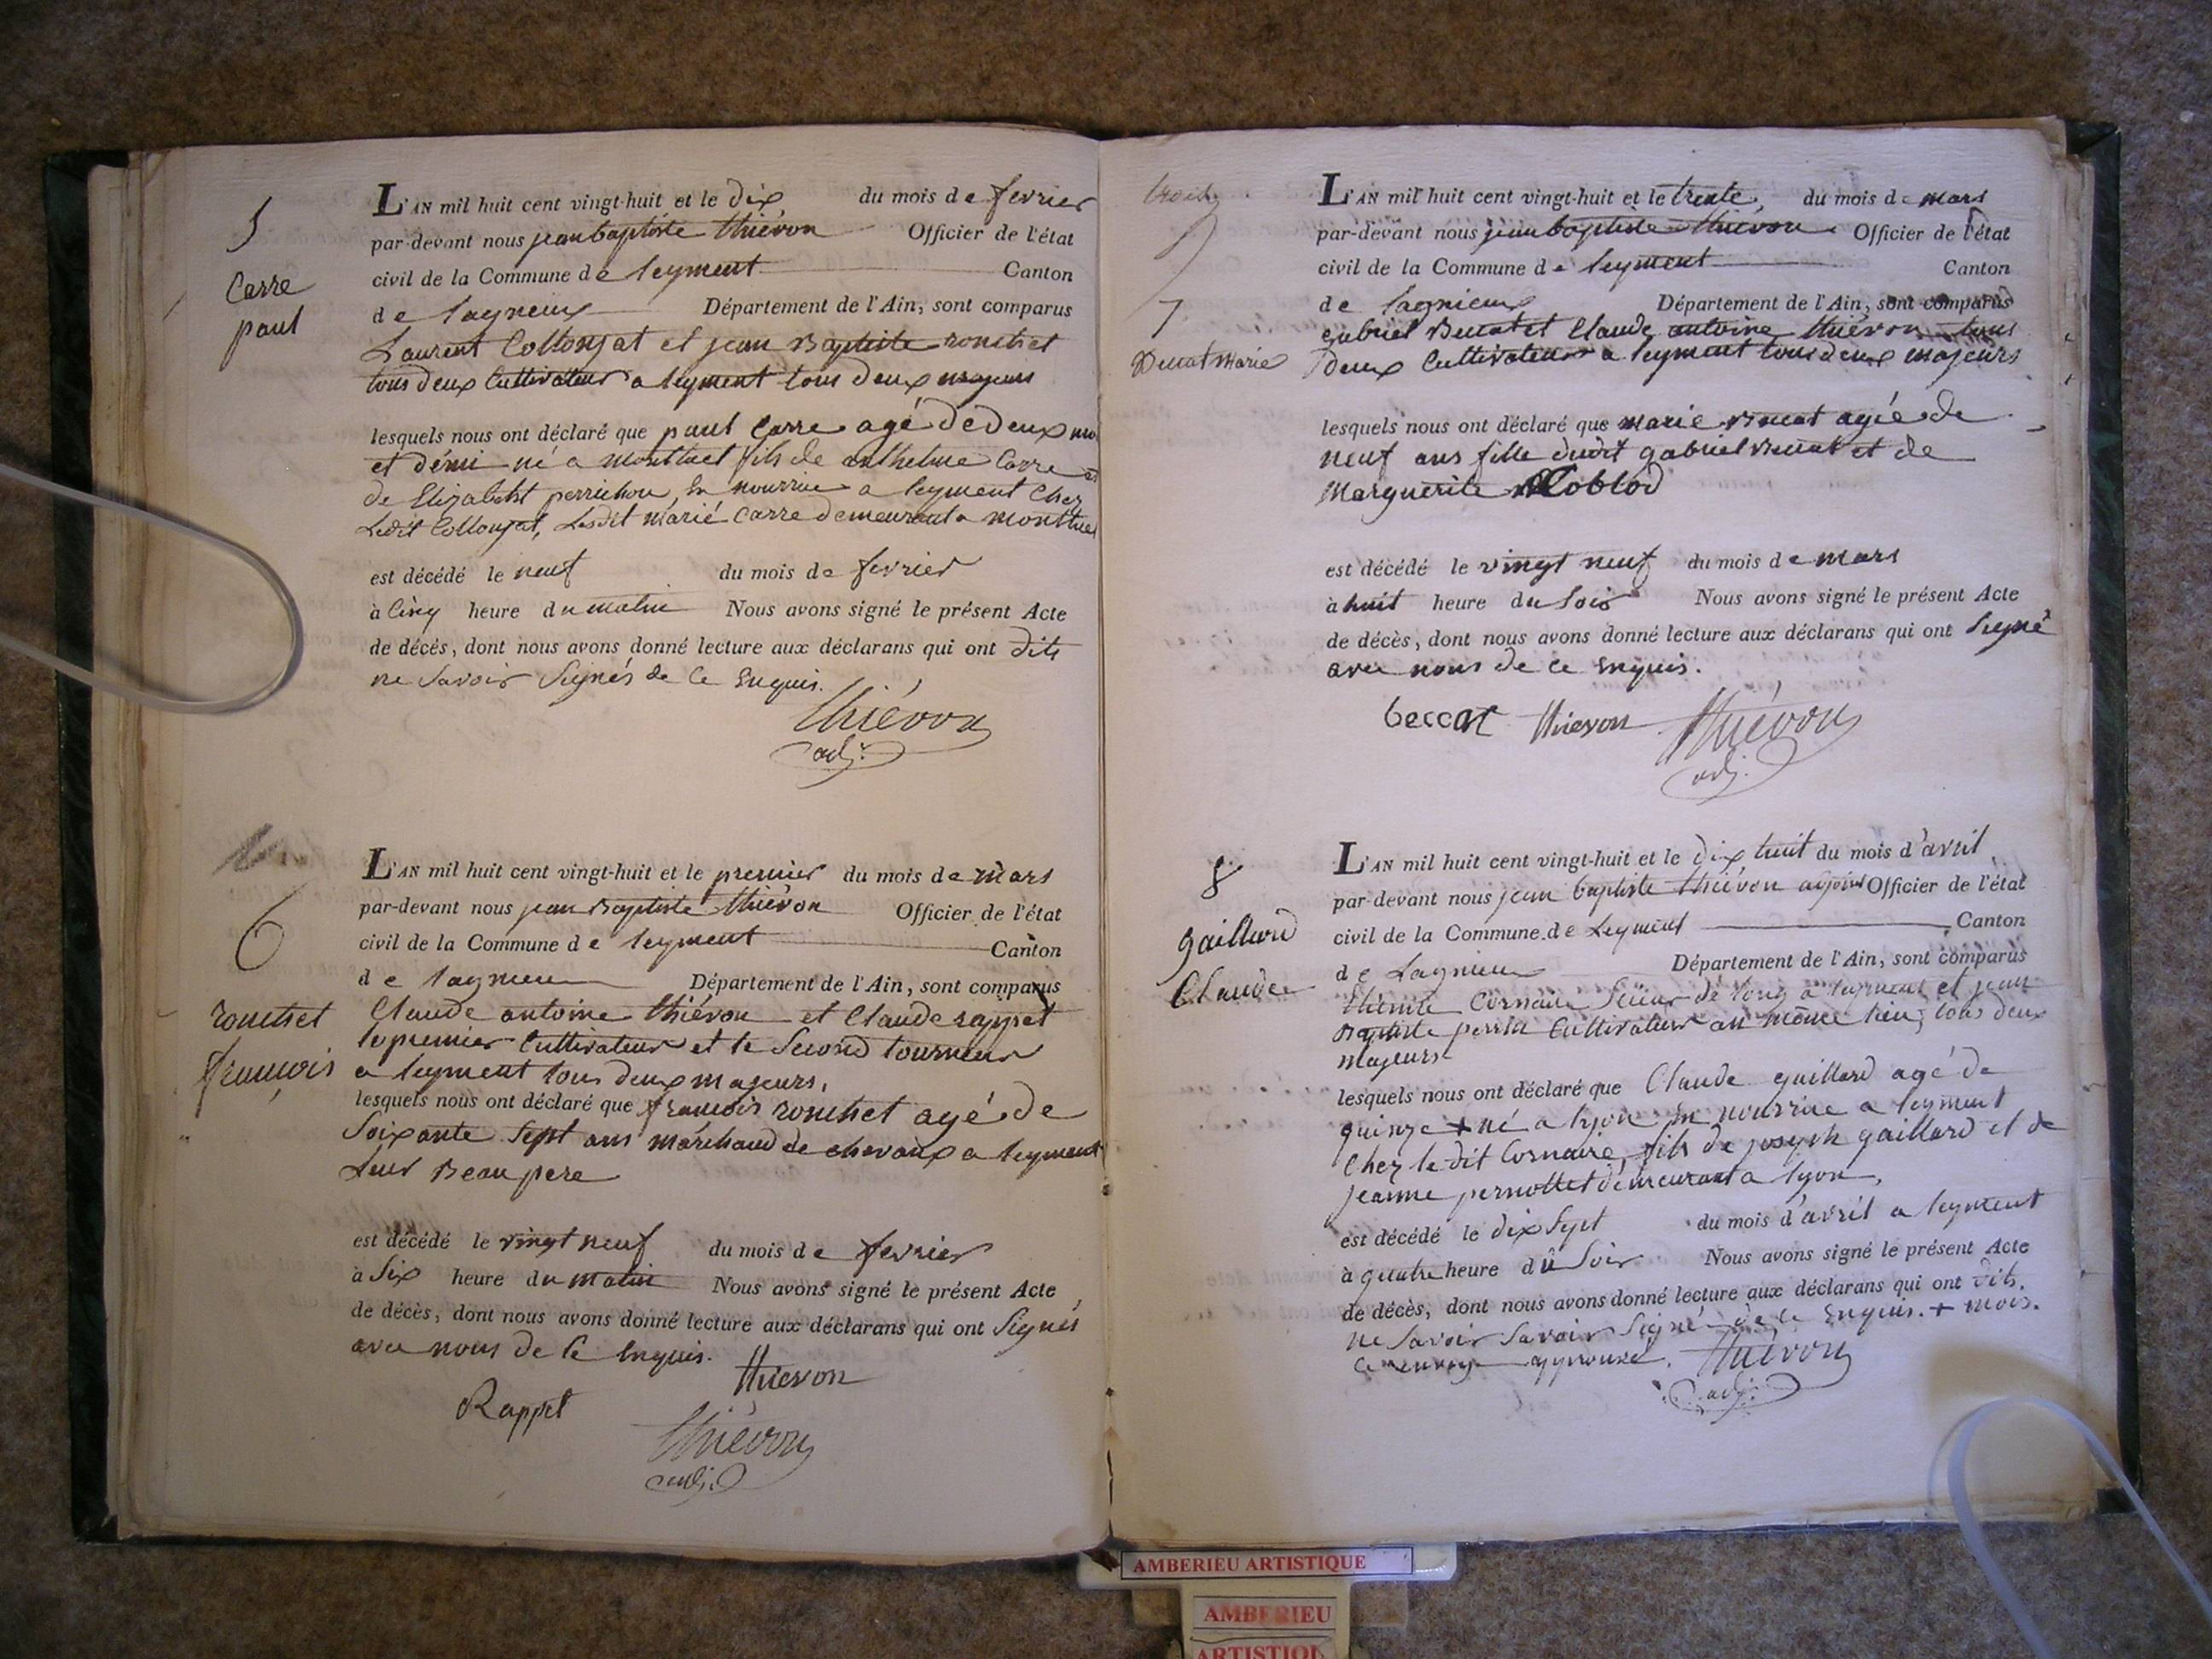 5
Carre
paul
L'AN mil huit cent vingt-huit et le dix du mois de fevrier
par-devant nous jean baptiste thiévon Officier de l'état
civil de la Commune de leyment Canton
de lagnieu Département de l'Ain, sont comparus
Laurent Collonjat et jean Baptiste ronchet
tous deux Cultivateur a leyment tous deux majeurs
lesquels nous ont déclaré que paul Carre agé de deux moi
et démi né a montluel fils de anthelme Carre et
de Elizabeht perrichon, En nourrice a leyment Chez
Ledit Collonjat, Lesdit marié Carre demeurant a montluel
est décédé le neuf du mois de fevrier
à Cinq heure du matin Nous avons signé le présent Acte
de décés, dont nous avons donné lecture aux déclarans qui ont dits
ne Savoir Signés de Ce Enquis.
thiévon
adj.
6
ronchet
françois
L'AN mil huit cent vingt-huit et le premier du mois de mars
par-devant nous jean Baptiste thiévon Officier de l'état
civil de la Commune de leyment Canton
de lagnieu Département de l'Ain, sont comparus
Claude antoine thiévon et Claude rappet
le premier Cultivateur et le Second tourneur
a leyment tous deux majeurs,
lesquels nous ont déclaré que françois ronchet agé de
Soixante Sept ans marchaud de chevaux a leyment
Leur Beau pere
est décédé le vingt neuf du mois de fevrier
à Six heure du matin Nous avons signé le présent Acte
de décès, dont nous avons donné lecture aux déclarans qui ont Signés
avec nous de Ce Enquis.
thievon
Rappet
thiévon
adj.
7
Marie
L'AN mil huit cent vingt-huit et le trente du mois de mars
par-devant nous jean baptiste thiévon Officier de l'état
civil de la Commune de leyment Canton
de lagnieu Département de l'Ain, sont comparus
gabriel et Claude antoine thiévon tous
deux Cultivateur a leyment tous deux majeurs
lesquels nous ont déclaré que marie agée de
neuf ans fille dudit gabriel et de
Marguerite
est décédé le vingt neuf du mois de mars
à huit heure du soir Nous avons signé le présent Acte
de décès, dont nous avons donné lecture aux déclarans qui ont Signé
avec nous de ce Enquis.
beccat thievon thiévon
adj.
8
gaillard
Claude
L'AN mil huit cent vingt-huit et le dix huit du mois d'avril
par-devant nous jean baptiste thiévon adjoint Officier de l'état
civil de la Commune de Leyment Canton
de Lagnieu Département de l'Ain, sont comparus
Etienne Cornaire Scieur de long a leyment et jean
Baptiste perrin Cultivateur au même lieu, tous deux
majeurs
lesquels nous ont déclaré que Claude gaillard agé de
quinze + né a lyon En nourrice a leyment
Chez le dit Cornaire, fils de joseph gaillard et de
jeanne pernollet démeurant a lyon,
est décédé le dix Sept du mois d'avril a leyment
à quatre heure du Soir Nous avons signé le présent Acte
de décès, dont nous avons donné lecture aux déclarans qui ont dits.
ne Savoir Savoir Signé de ce Enquis. + mois.
Ce renvoy approuvé. thiévon
adj.
AMBERIEU ARTISTIQUE
AMBERIEU